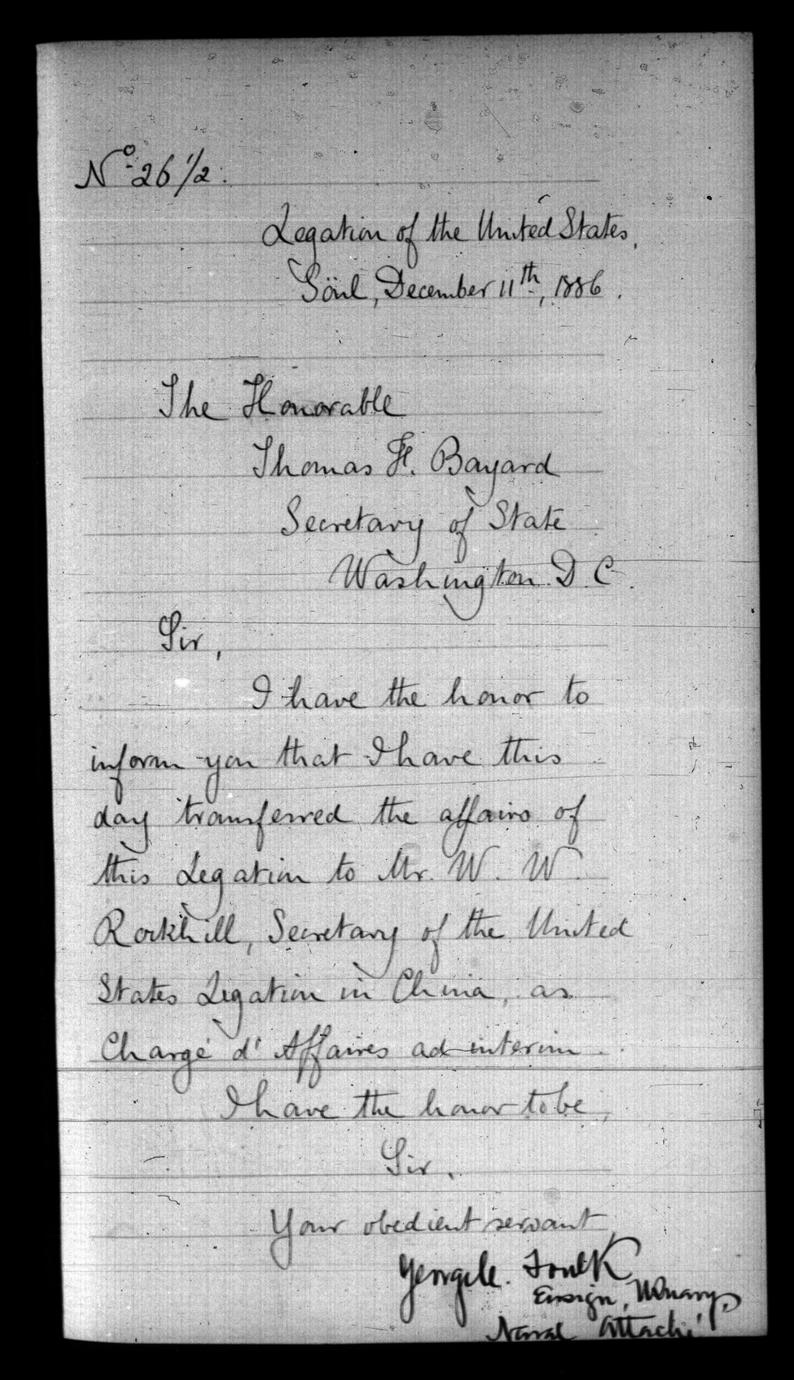 Nº 26 1/2.
Legation of the United States,
Söul, December 11th, 1886.
The Honorable
Thomas F. Bayard
Secretary of State
Washington D C.
Sir,
I have the honor to
inform you that I have this
day transferred the affairs of
this Legation to Mr. W. W.
Rockhill, Secretary of the United
States Legation in China, as
Chargé d' Affaires ad interim.
I have the honor to be,
Sir,
Your obedient servant,
George C. Foulk
Ensign, U.S. Navy,
Naval Attaché